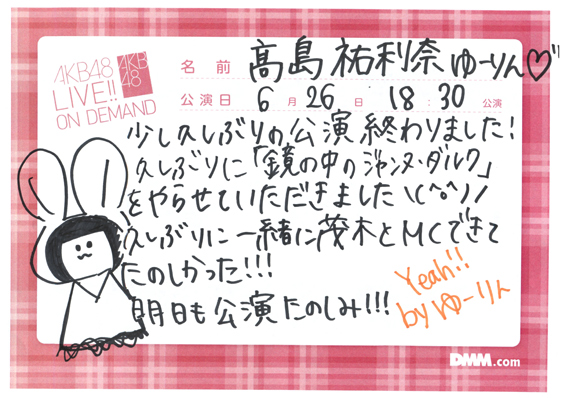 AKB48
LIVE!!
ON DEMAND
AKB
48
名前 髙島 祐利奈 ゆーりん♡
公演日 6月26日 18:30公演
少し久しぶりの公演終わりました!
久しぶりに「鏡の中のジャンヌ・ダルク」
をやらせていただきました\(^o^)/
久しぶりに一緒に茂木とMCできて
たのしかった!!!
明日も公演たのしみ!!!
Yeah!!
by ゆーりん
DMM.com